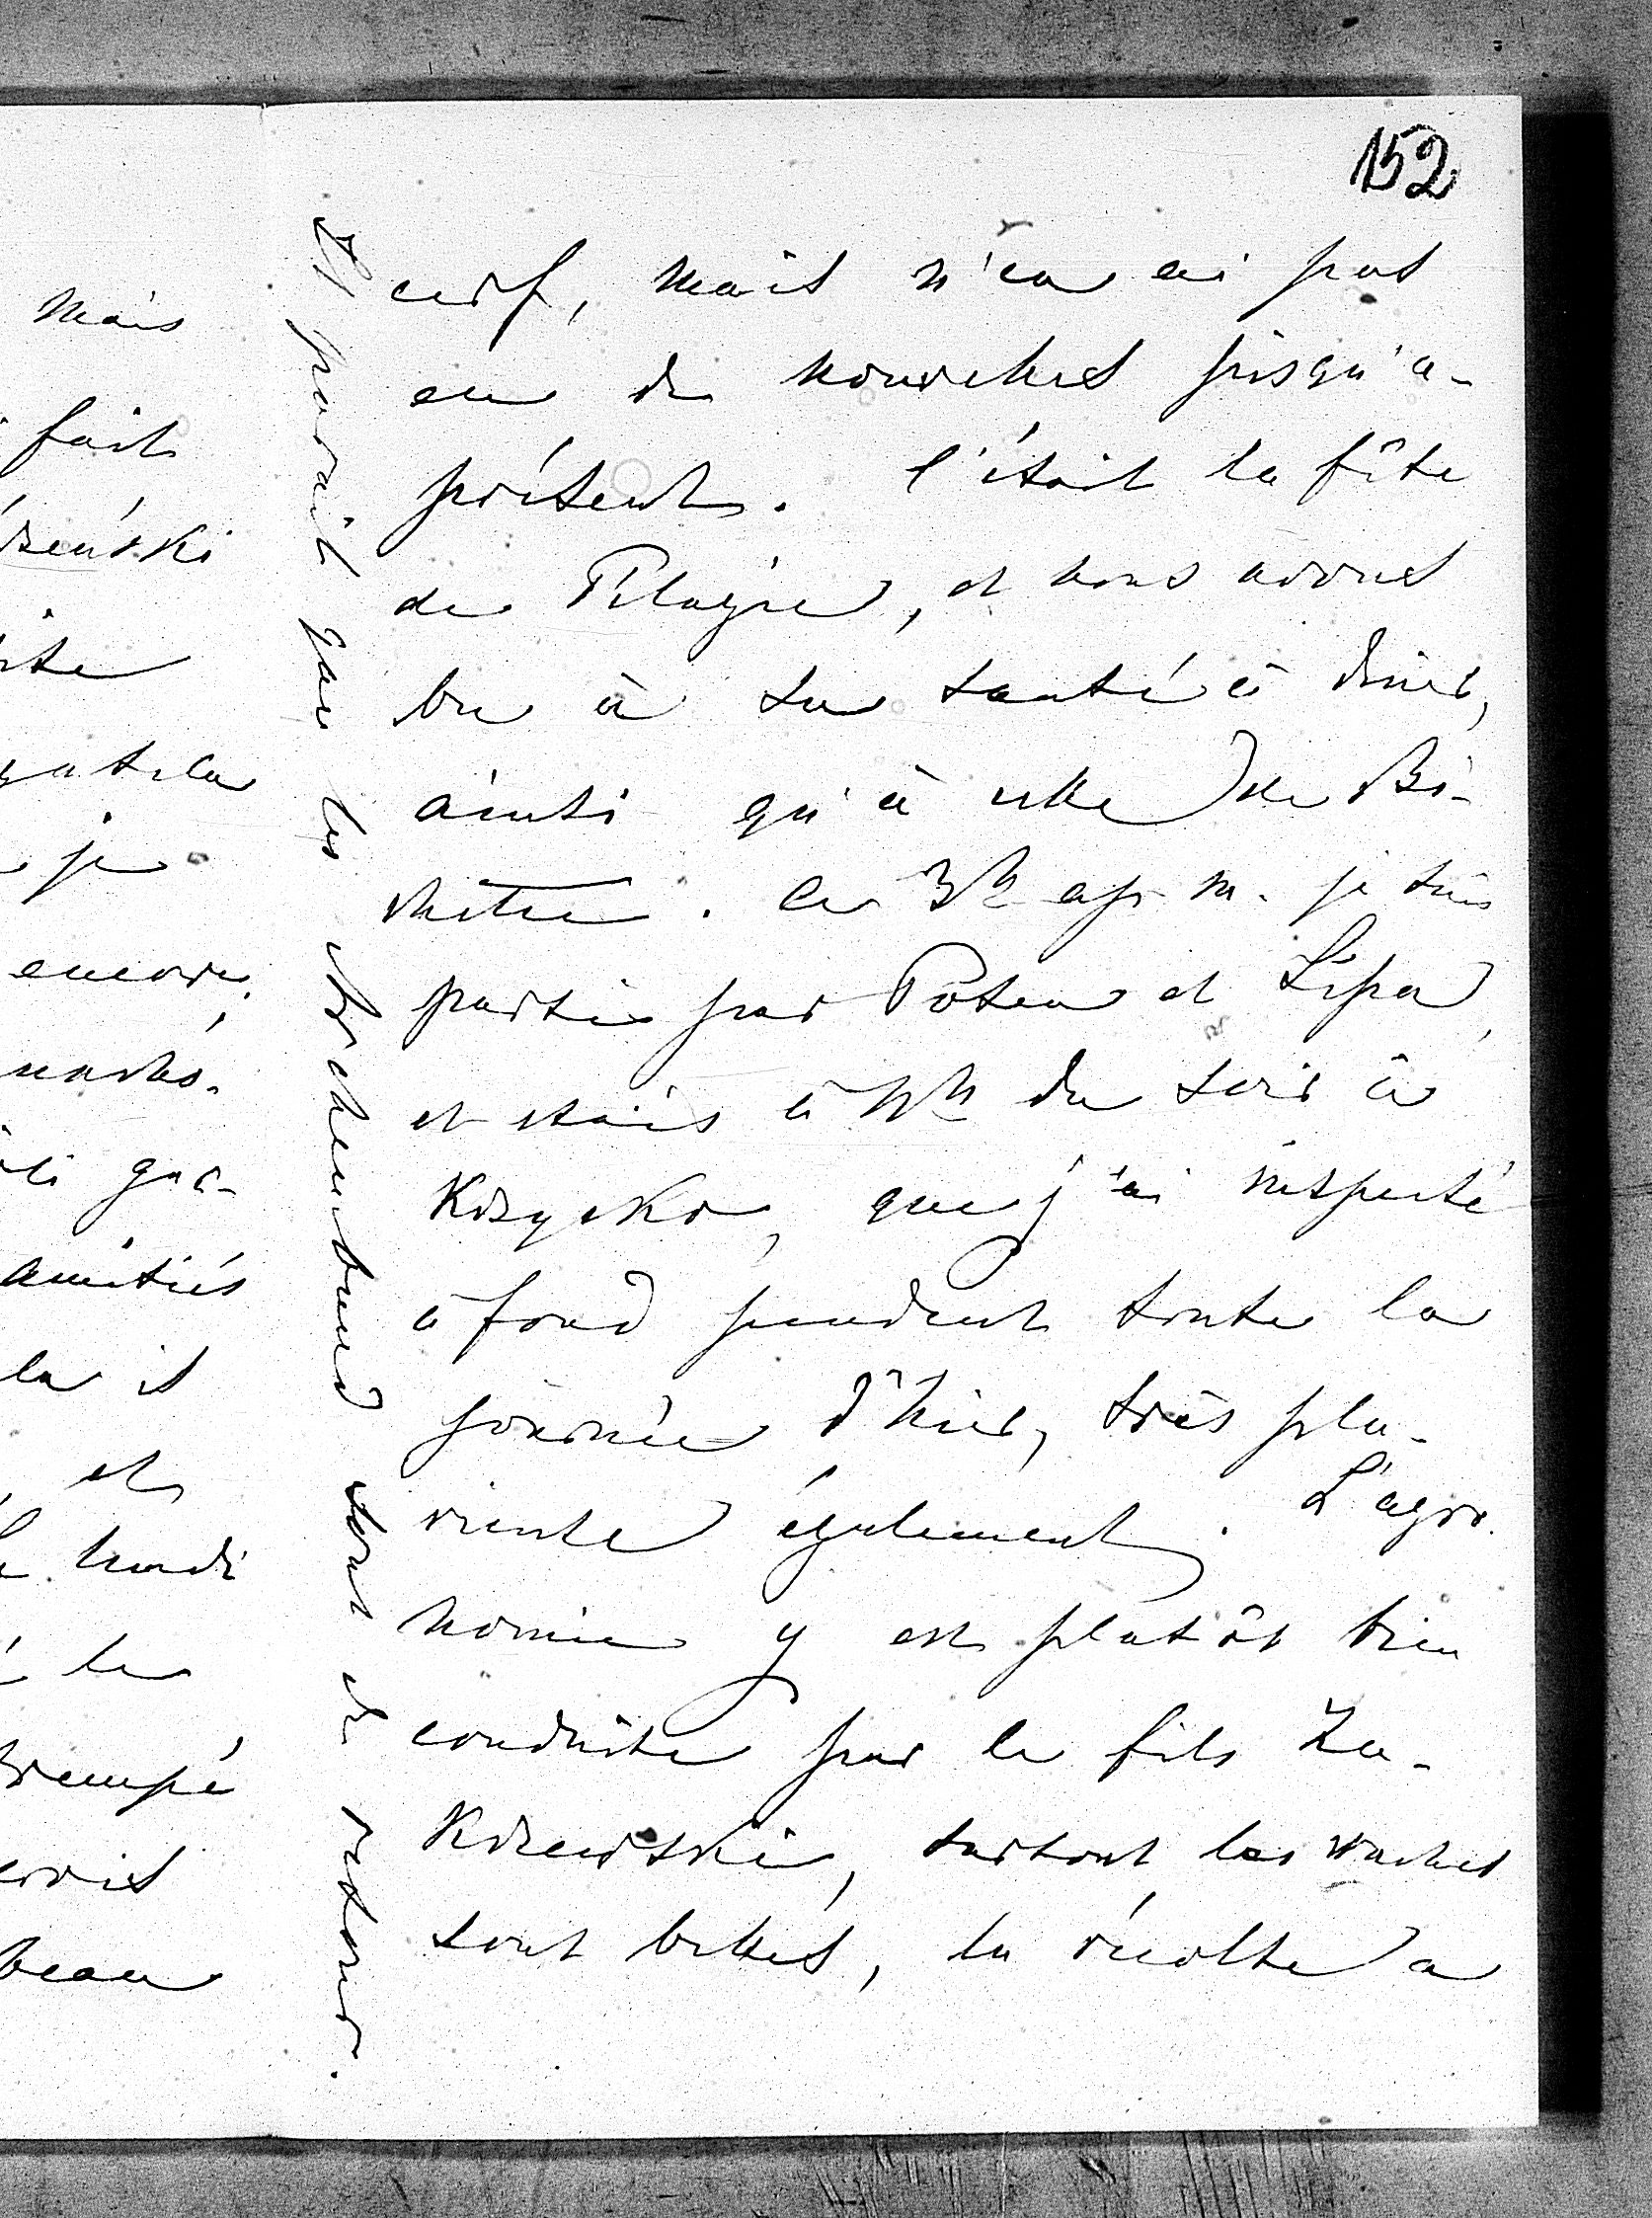 152
cerf, mais n'en ai pas
eu de nouvelles jusqu'à-
présent. C'était la fête
de Pélagie, et nous avons
bu à sa santé à dîner,
ainsi qu'à celle de Bi-
chette. A 3h ap. m. je suis
parti par Posen et Lipa,
et étais à h du soir à
Krzycko, que j'ai inspecté
à fond pendant toute la
journée d'hier, très plu-
vieuse également. L'agro-
nomie y est plutôt bien
conduite par le fils Za-
krzewski, surtout les vaches
sont belles, la récolte a
Il paraît que les sont de retour.
mais
fait
rzeński
ite
je
encore,
amitiés
la it
et
lundi
le
trempé
beau